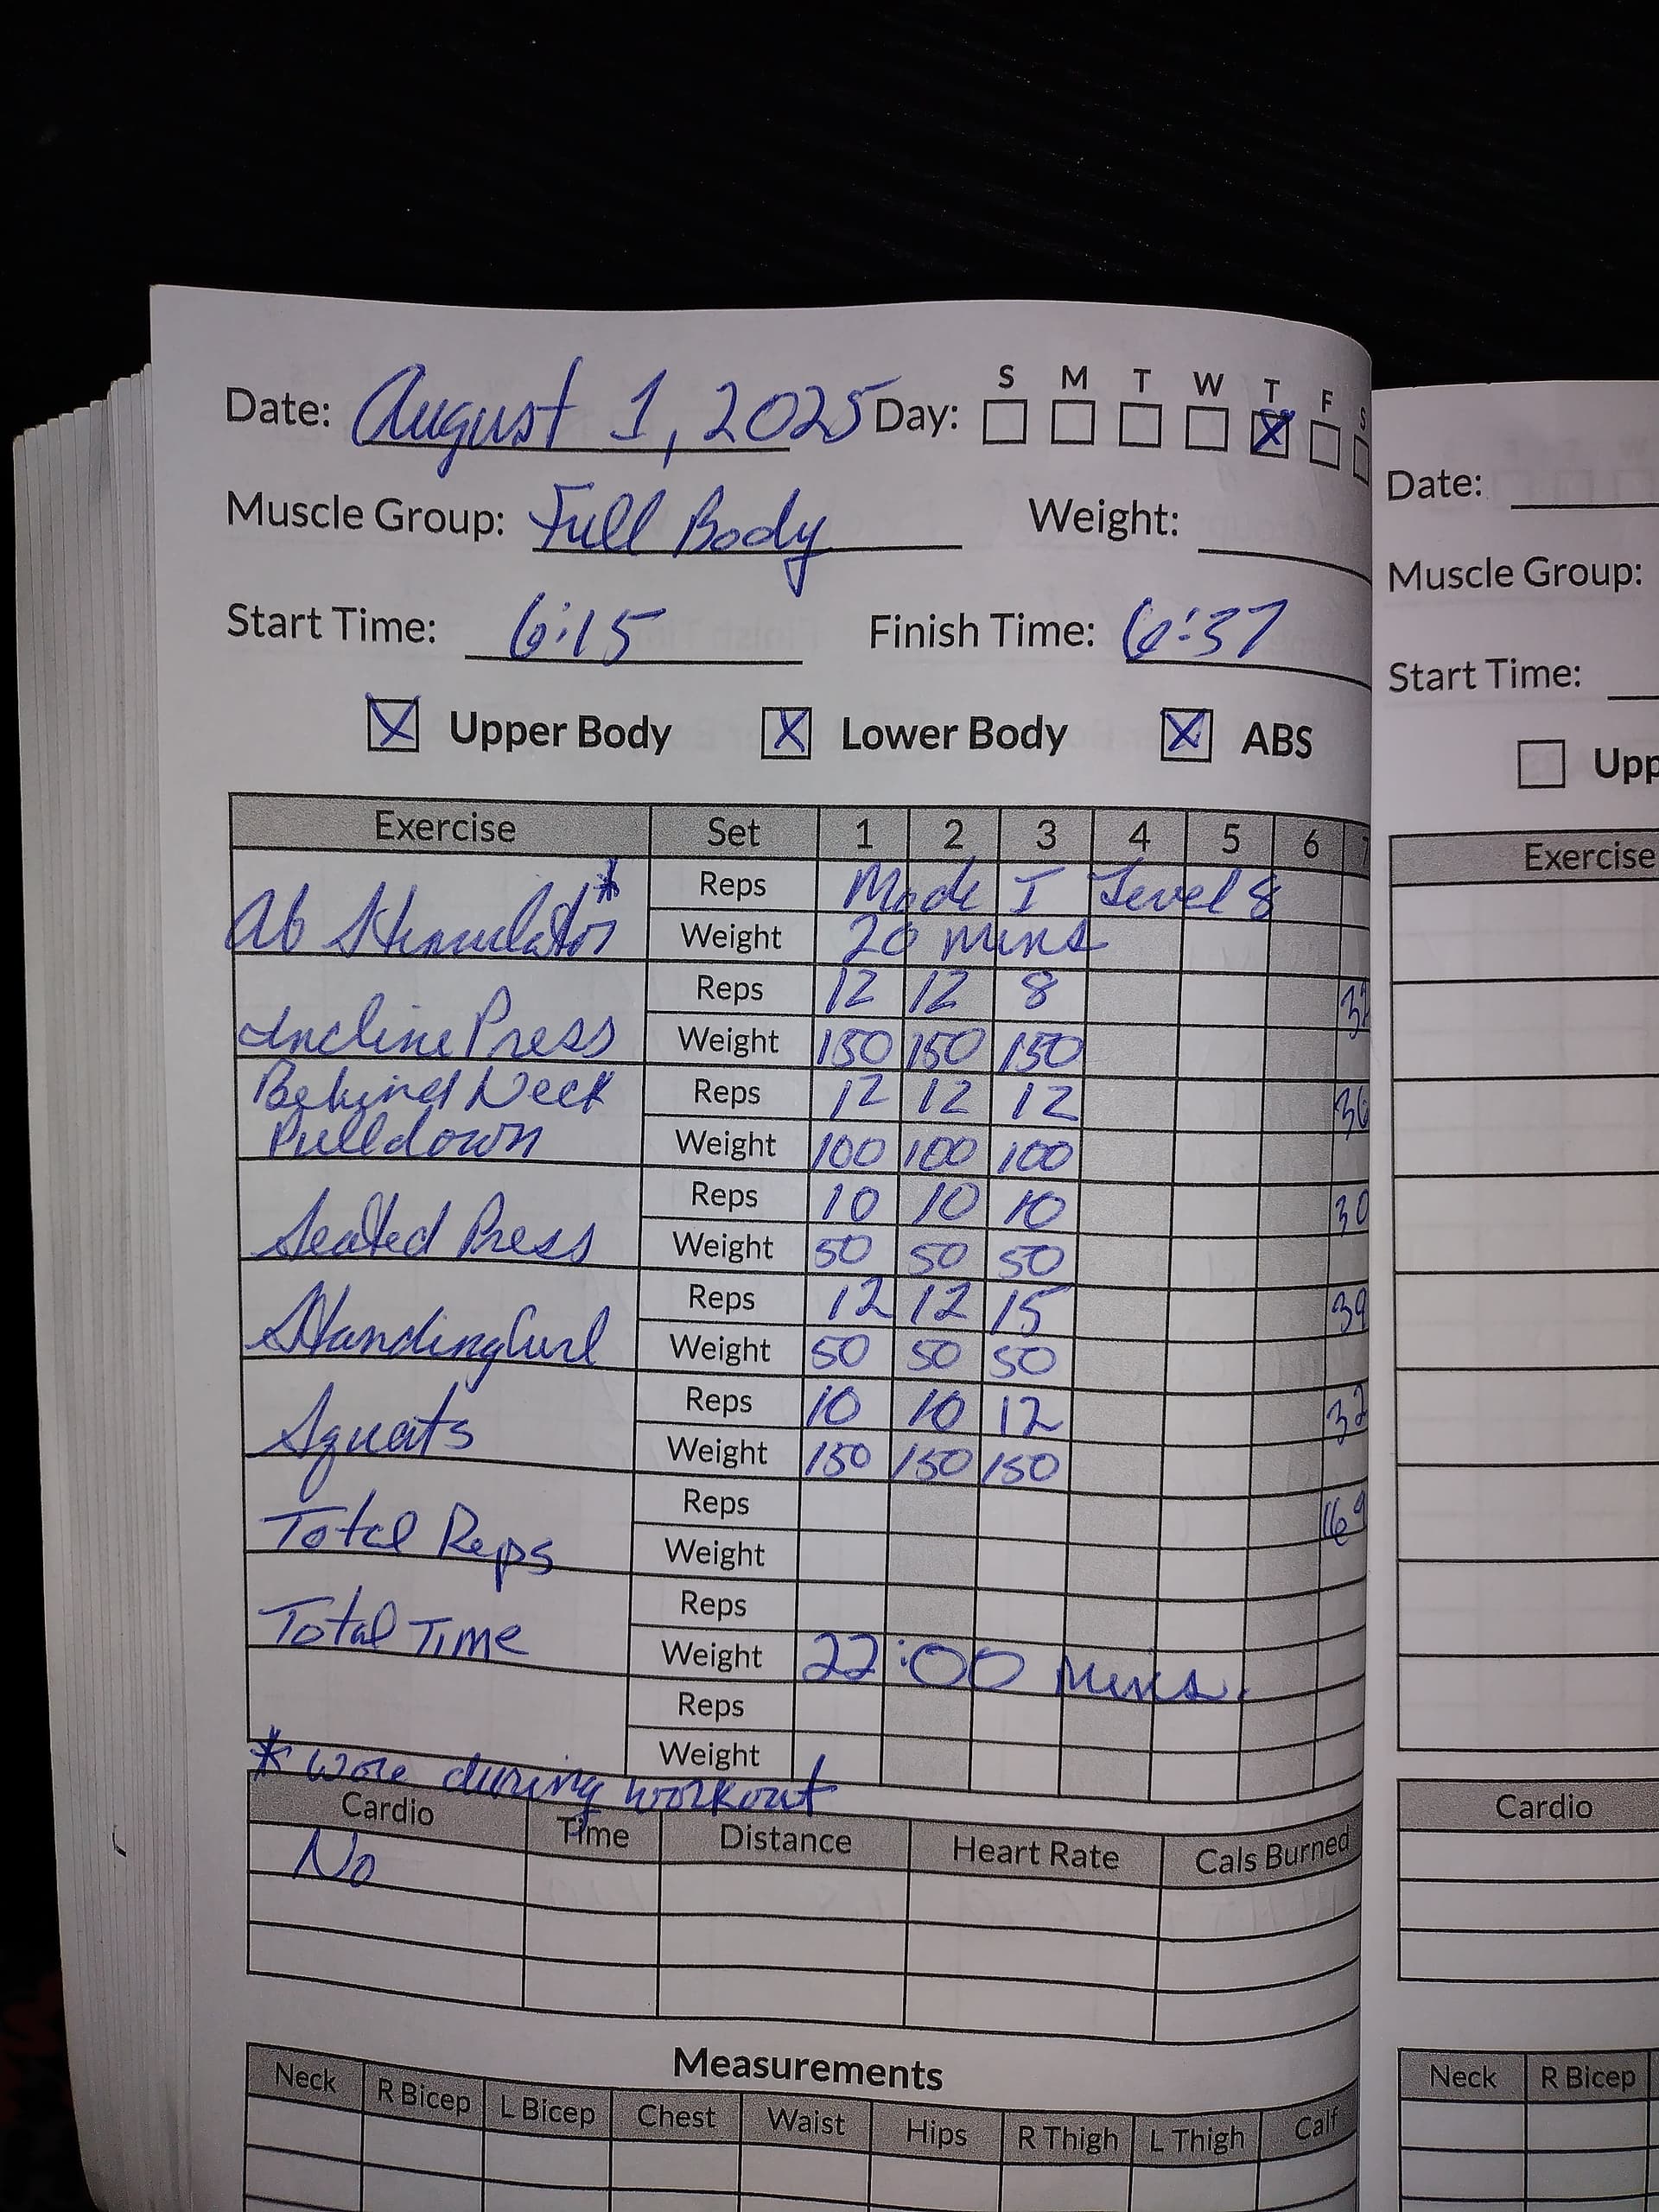 S M T W T F S
Date: August 1, 2025 Day:
Muscle Group: Full Body Weight:
Start Time: 6:15 Finish Time: 6:37
Upper Body Lower Body ABS
Exercise Set 1 2 3 4 5 6 7
Ab Stimulator* Reps Mode I Level 8
Weight 20 mins
Incline Press Reps 12 12 8 32
Weight 150 150 150
Behind Neck Reps 12 12 12 36
Pulldown Weight 100 100 100
Seated Press Reps 10 10 10 30
Weight 50 50 50
Standing Curl Reps 12 12 15 39
Weight 50 50 50
Squats Reps 10 10 12 32
Weight 150 150 150
Total Reps Reps 169
Weight
Total Time Reps
Weight 22:00 mins.
Reps
Weight
* wore during workout
Cardio Time Distance Heart Rate Cals Burned
No
Measurements
Neck R Bicep L Bicep Chest Waist Hips R Thigh L Thigh Calf
Date:
Muscle Group:
Start Time:
Upp
Exercise
Cardio
Neck R Bicep